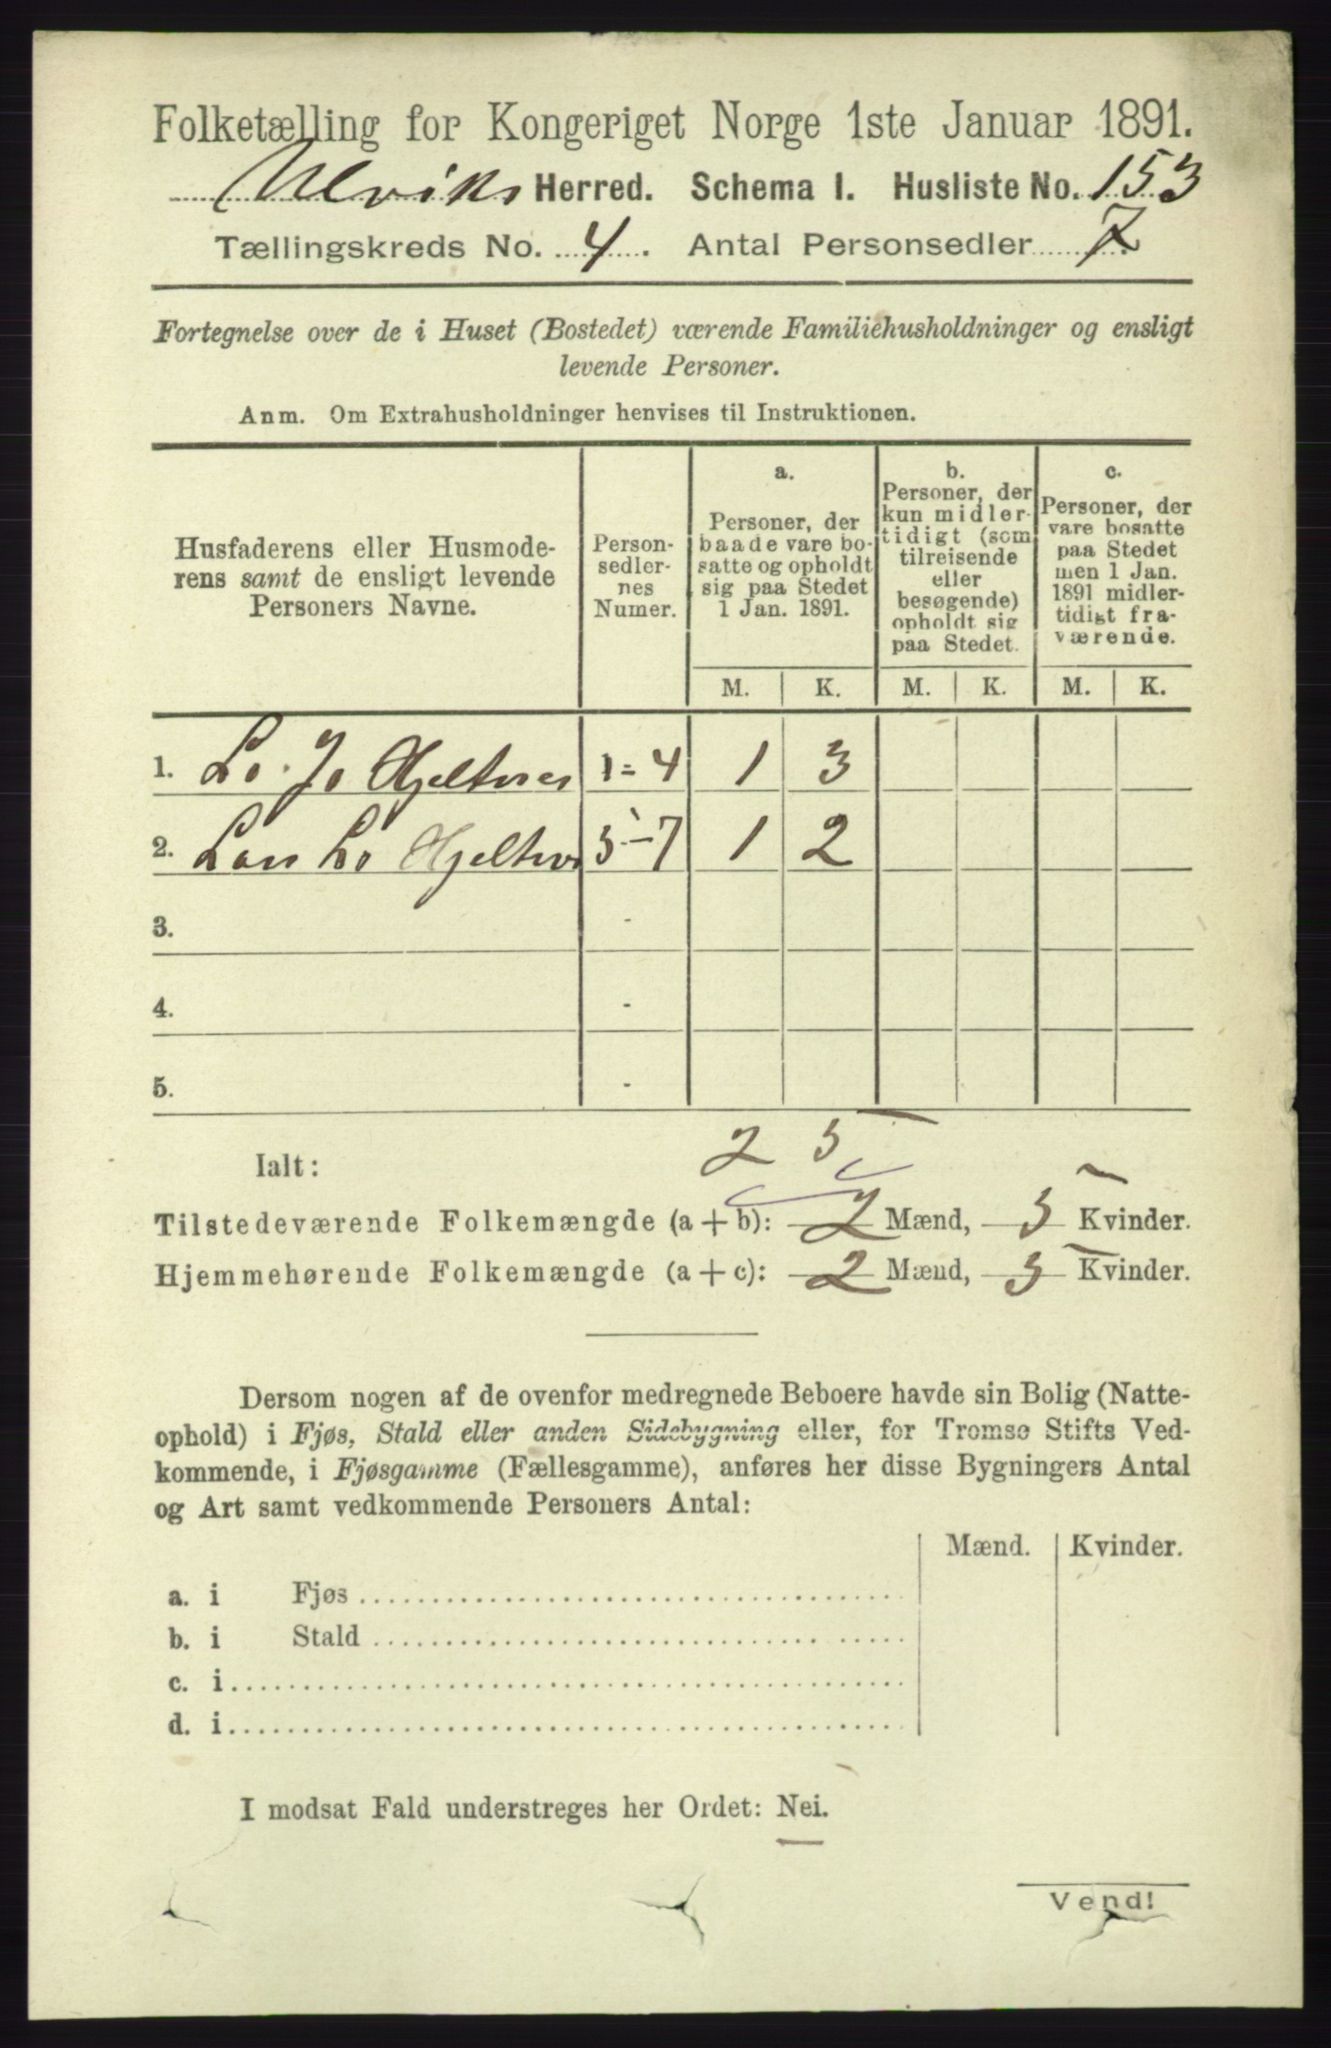 Folketælling for Kongeriget Norge 1ste Januar 1891.
Ulviks Herred. Schema I. Husliste No. 153
Tællingskreds No. 4. Antal Personsedler 7
Fortegnelse over de i Huset (Bostedet) værende Familiehusholdninger og ensligt
levende Personer.
Anm. Om Extrahusholdninger henvises til Instruktionen.
Husfaderens eller Husmode-
rens samt de ensligt levende
Personers Navne.
Person-
sedler-
nes
Numer.
a.
Personer, der
baade vare bo-
satte og opholdt
sig paa Stedet
1 Jan. 1891.
b.
Personer, der
kun midler-
tidigt (som
tilreisende
eller
besøgende)
opholdt sig
paa Stedet.
c.
Personer, der
vare bosatte
paa Stedet
men 1 Jan.
1891 midler-
tidigt fra-
værende.
M. K. M. K. M. K.
1. L. Jo Hjeltnes 1=4 1 3
2. Lars L. Hjeltnes 5-7 1 2
3. -
4. -
5. -
2 5
Ialt:
Tilstedeværende Folkemængde (a+b): 2 Mænd, 5 Kvinder.
Hjemmehørende Folkemængde (a+c): 2 Mænd, 5 Kvinder.
Dersom nogen af de ovenfor medregnede Beboere havde sin Bolig (Natte-
ophold) i Fjøs, Stald eller anden Sidebygning eller, for Tromsø Stifts Ved-
kommende, i Fjøsgamme (Fællesgamme), anføres her disse Bygningers Antal
og Art samt vedkommende Personers Antal:
Mænd. Kvinder.
a. i Fjøs
b. i Stald
c. i
d. i
I modsat Fald understreges her Ordet: Nei.
Vend!